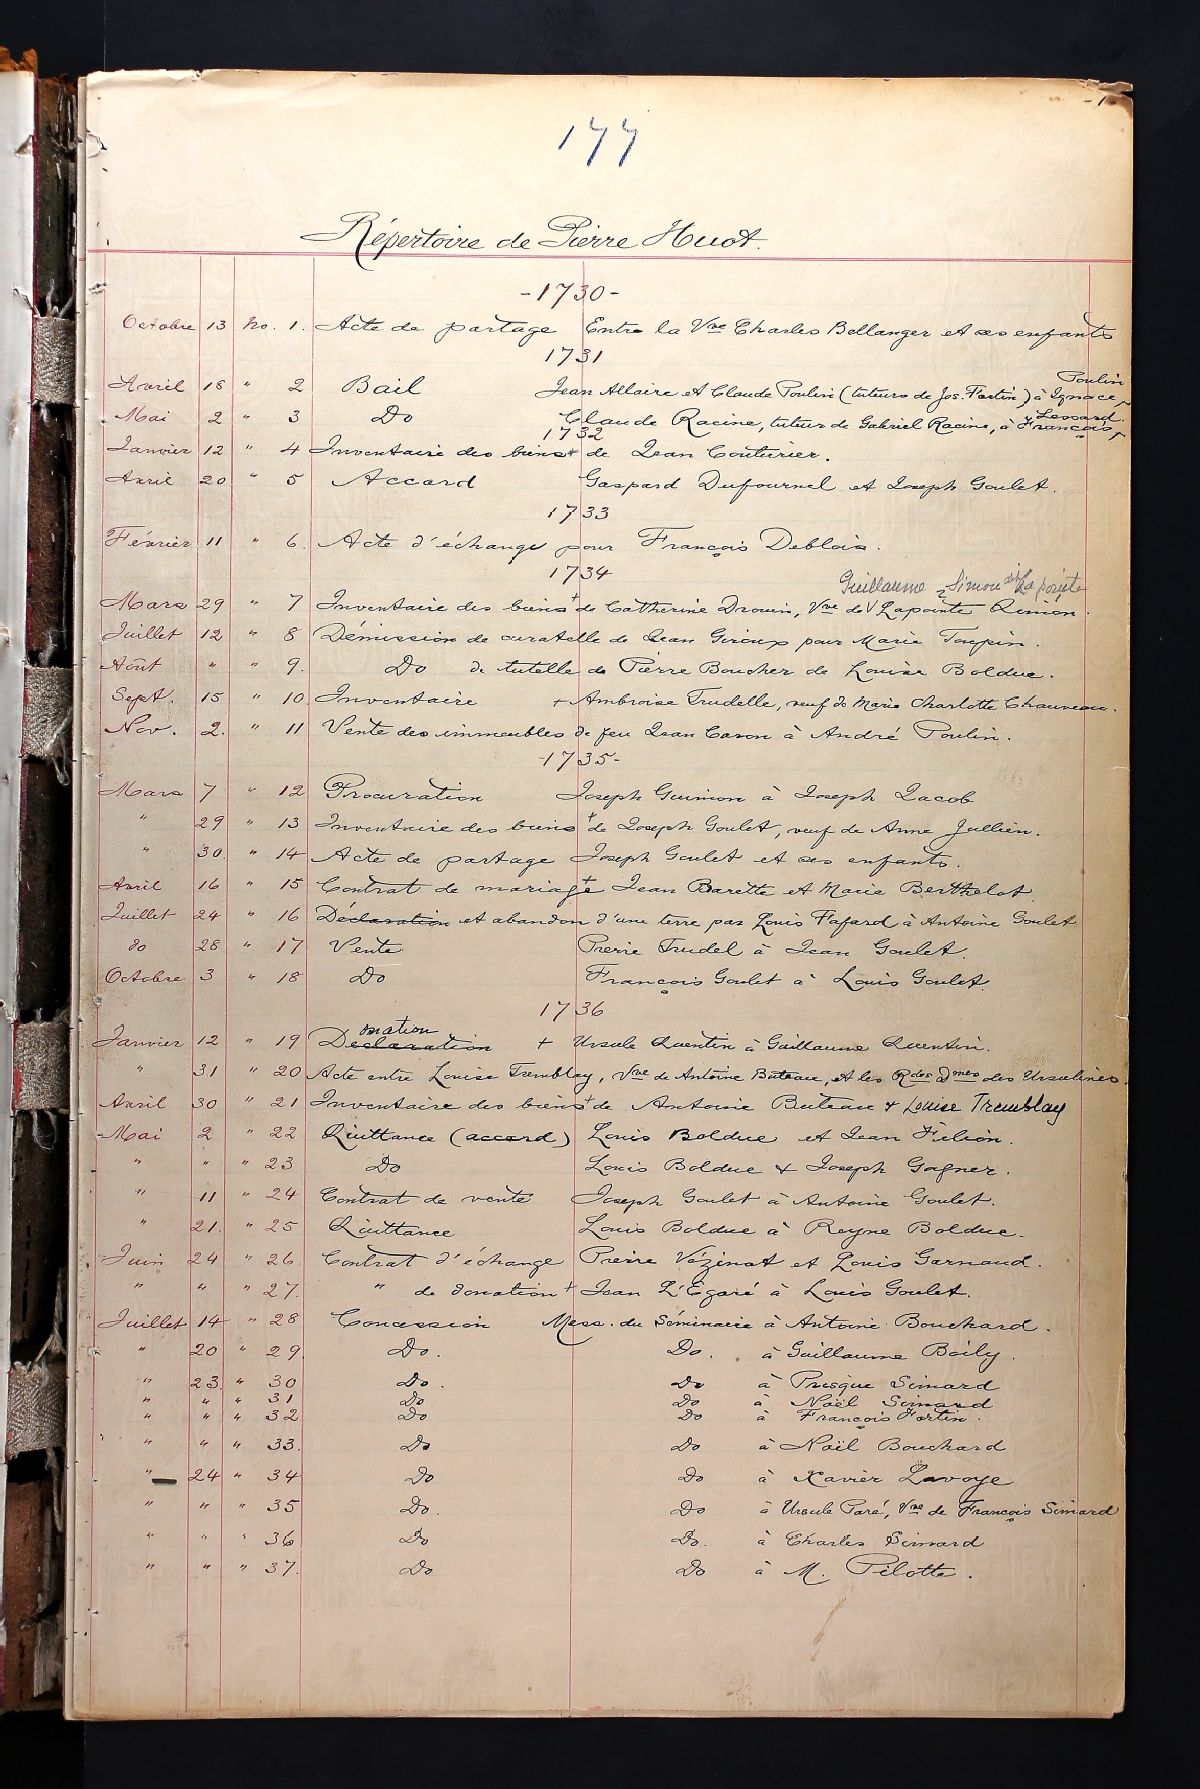 - 1 -
177
Répertoire de Pierre Huot.
- 1730 -
Octobre 13 No. 1. Acte de partage Entre la Vve Charles Bellanger et ses enfants
1731
Avril 18 " 2 Bail Jean Allaire et Claude Poulin (tuteurs de Jos. Fortin) à Ignace Poulin
Mai 2 " 3 Do Claude Racine, tuteur de Gabriel Racine, à François Lessard
1732
Janvier 12 " 4 Inventaire des biens + de Jean Couturier.
Avril 20 " 5 Accord Gaspard Dufournel et Joseph Goulet.
1733
Février 11 " 6. Acte d'échange pour François Deblois.
1734
Guillaume Simon dit La pointe
Mars 29 " 7 Inventaire des biens + de Catherine Drouin, Vve de V Lapointe Simon.
Juillet 12 " 8 Démission de curatelle de Jean Giroux pour Marie Toupin.
Août " " 9. Do de tutelle de Pierre Boucher de Louise Bolduc.
Sept. 15 " 10 Inventaire + Ambroise Trudelle, veuf de Marie Charlotte Chauveau.
Nov. 2. " 11 Vente des immeubles de feu Jean Caron à André Poulin.
- 1735 -
Mars 7 " 12 Procuration Joseph Guimon à Joseph Jacob
" 29 " 13 Inventaire des biens + de Joseph Goulet, veuf de Anne Jullien.
" 30 " 14 Acte de partage Joseph Goulet et ses enfants.
Avril 16 " 15 Contrat de mariage + Jean Barette et Marie Berthelot
Juillet 24 " 16 Déclaration et abandon d'une terre par Louis Fafard à Antoine Goulet
do 28 " 17 Vente Pierre Trudel à Jean Goulet.
Octobre 3 " 18 Do François Goulet à Louis Goulet.
1736
nation
Janvier 12 " 19 Declaration + Ursule Quentin à Guillaume Quentin.
" 31 " 20 Acte entre Louise Tremblay, Vve de Antoine Buteau, et les Rdes Dmes des Ursulines.
Avril 30 " 21 Inventaire des biens + de Antoine Buteau & Louise Tremblay
Mai 2 " 22 Quittance (accord) Louis Bolduc et Jean Filion.
" " " 23 Do Louis Bolduc & Joseph Gagner.
" 11 " 24 Contrat de vente Joseph Goulet à Antoine Goulet.
" 21. " 25 Quittance Louis Bolduc à Reyne Bolduc.
Juin 24 " 26 Contrat d'échange Pierre Vézinat et Louis Garnaud.
" " " 27. " de donation + Jean L'Egaré à Louis Goulet.
Juillet 14 " 28 Concession Mess. du Séminaire à Antoine Bouchard.
" 20 " 29 Do. Do. à Guillaume Boily.
" 23 " 30 Do. Do à Prisque Simard
" " " 31 Do Do à Noël Simard
" " " 32 Do Do à François Fortin.
" " " 33. Do Do à Noël Bouchard
" 24 " 34 Do Do à Xavier Lavoye
" " " 35 Do. Do à Ursule Paré, Vve de François Simard
" " " 36 Do Do. à Charles Simard
" " " 37. Do Do à M. Pilotte.